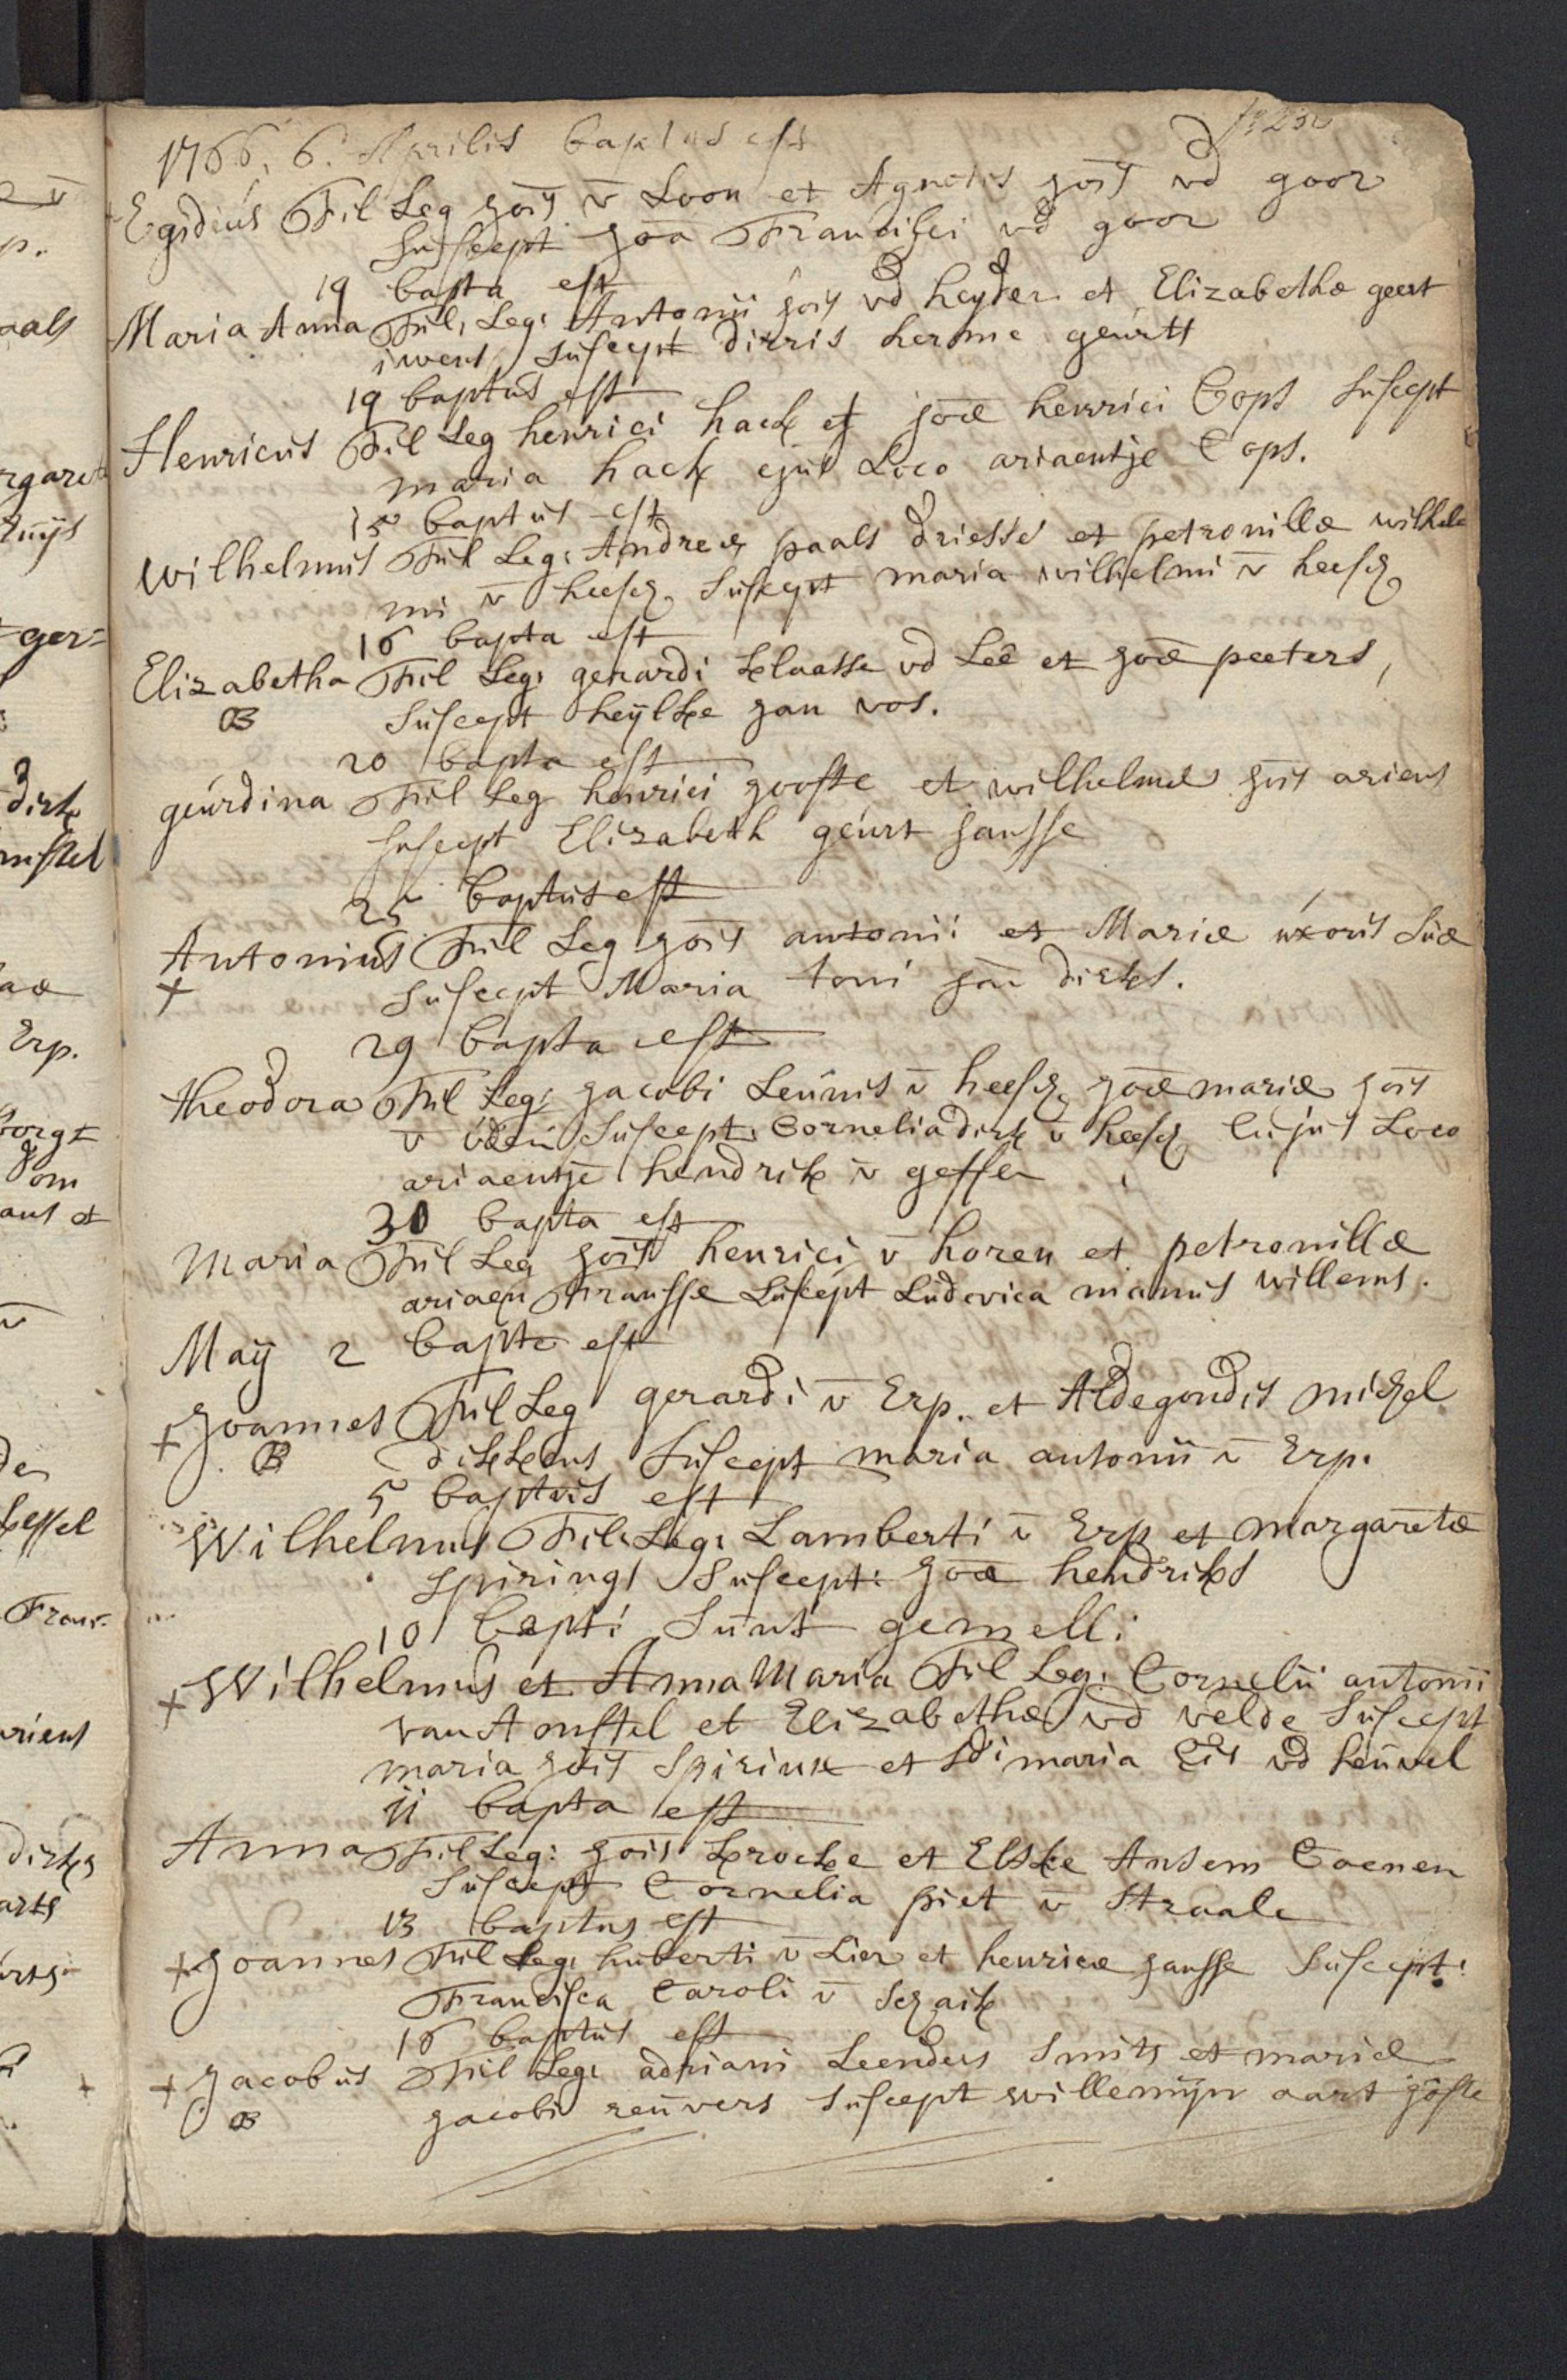 1766, 6. Aprilis baptus est
Egidius Fil Leg Jois v̄ Loon et Agnetis Jois vd goor
Suscept Joā Francisci vd goor
19 bapta est
Maria Anna Fil. Leg. Antonii Jois vd heyden et Elizabethæ geert
suscept dirris herme geurts
19 baptus est
Henricus Fil Leg henrici hack et Joæ henrici Cops Suscept
maria hack ejus Loco ariaentje Cops.
15 baptus est
Wilhelmus Fil Leg: Andreæ paals driesse et petronillæ wilhel
mi v̄ heesch Suscept maria wilhelmi v̄ heesch
16 bapta est
Elizabetha Fil Leg: gerardi klaasse vd Leē et Joæ peeters,
B Suscept heylke Jan vos.
20 bapta est
geurdina Fil Leg henrici gooste et wilhelmæ Jois ariens
suscept Elizabeth geurt Jansse
25 baptus est
Antonius Fil Leg Jois antonii et Mariæ uxoris Suæ
+ Suscept Maria toni Jan dirks.
29 bapta est
theodora Fil Leg: Jacobi Leunis v̄ heesch Joæ mariæ Jois
v̄ uden Suscept: Cornelia dirk v̄ heesch cujus Loco
ariaentje hendrik v̄ geffen
30 bapta est
Maria Fil Leg Jois henrici v̄ horen et petronillæ
ariaen Fransse Suscept Ludovica manus willems.
Maij 2 bapta est
+ Joannes Fil Leg gerardi v̄ Erp. et Aldegondis michel
B dikkens Suscept maria antonii v̄ Erp.
5 baptus est
Wilhelmus Fil: Leg: Lamberti v̄ Erp et margaretæ
spirings Suscept: Joæ hendriks
10 bapti Sunt gemelli
+ Wilhelmus et Anna Maria Fil Leg: Cornelii antonii
van Amstel et Elizabethæ vd velde Suscept
maria Jois Spirink et 2di maria vd heuvel
11 bapta est
Anna Fil Leg: Jois krocke et Elske Antem Coenen
Suscept Cornelia piet v̄ Straale
13 baptus est
+ Joannes Fil Leg: huberti v̄ Lier et henricæ Jansse Suscept:
Francisca Caroli v̄ Schaik
16 baptus est
+ Jacobus Fil Leg: adriani Leenders Smits et mariæ
B Jacobi reuvers Suscept willemijn aart goste